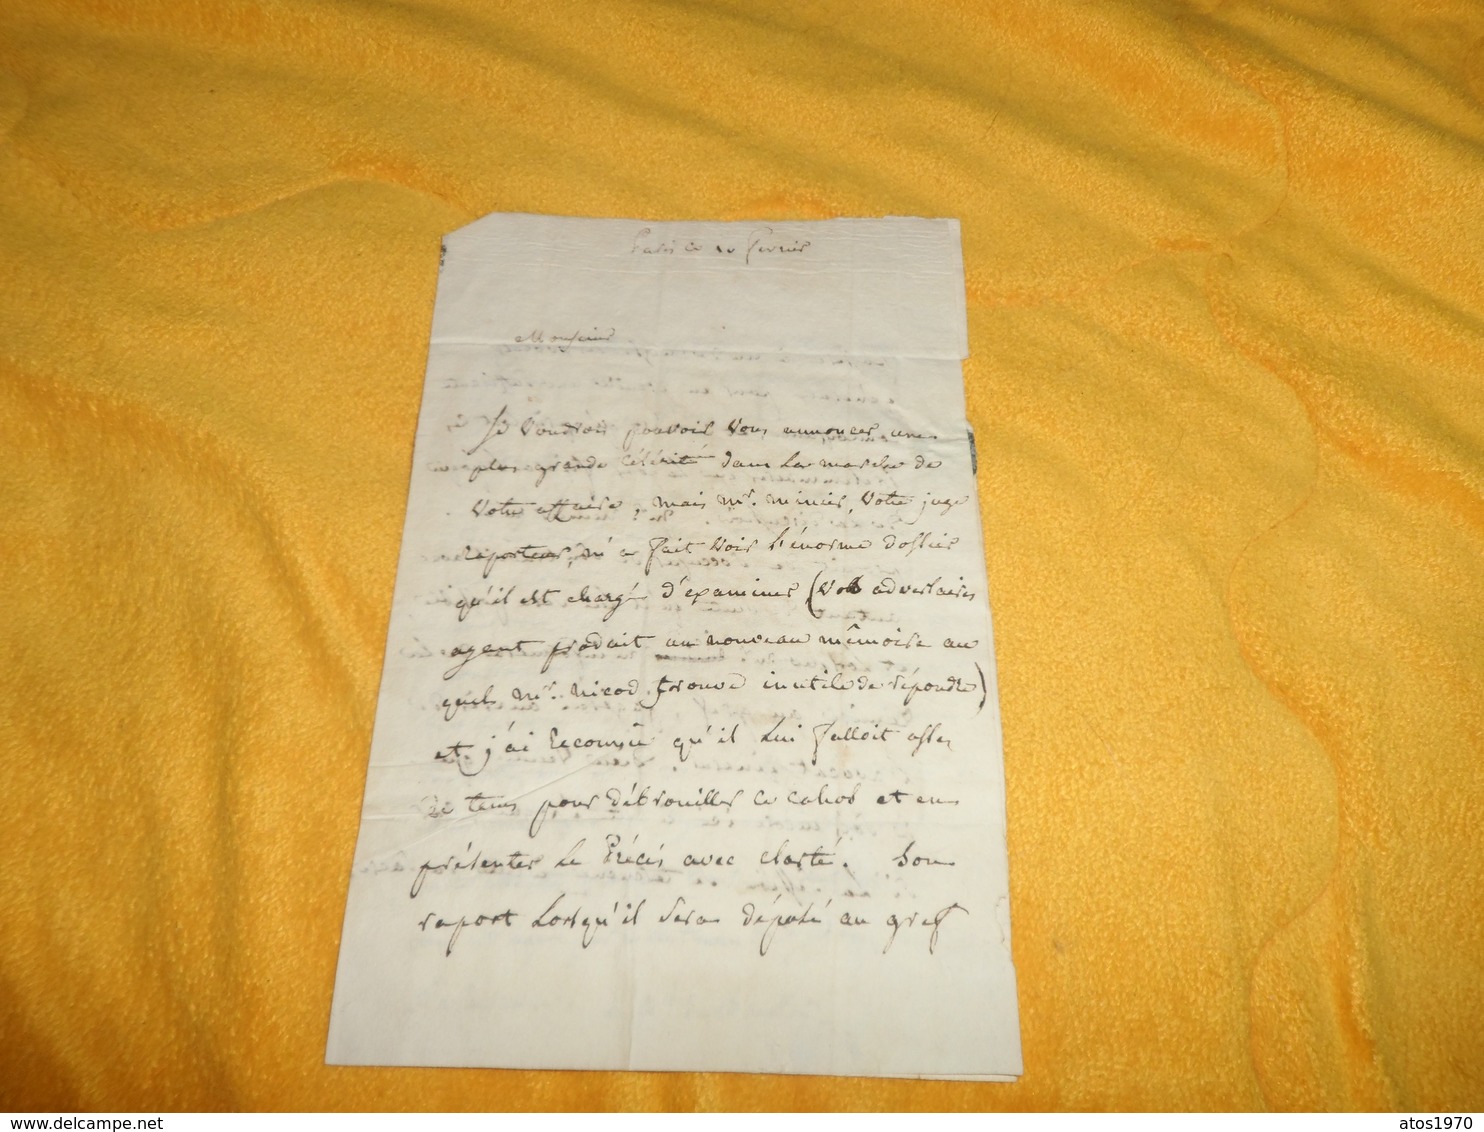 Paris ce 20 fevrier
Monsieur
Je voudrois pouvoir vous annoncer une
plus grande célérité dans la marche de
votre affaire, mais Mr. minier, votre juge
raporteur, m'a fait voir l'énorme dossier
qu'il est chargé d'examiner (vos adversaires
agent produit un nouveau mémoire au
quel mr. nicod trouve inutile de répondre)
et j'ai reconnu qu'il lui falloit assez
de tems pour débrouiller ce cahos et en
présenter le Précis avec clarté. Son
raport lorsqu'il sera déposé au gref
delcampe.net
atos1970